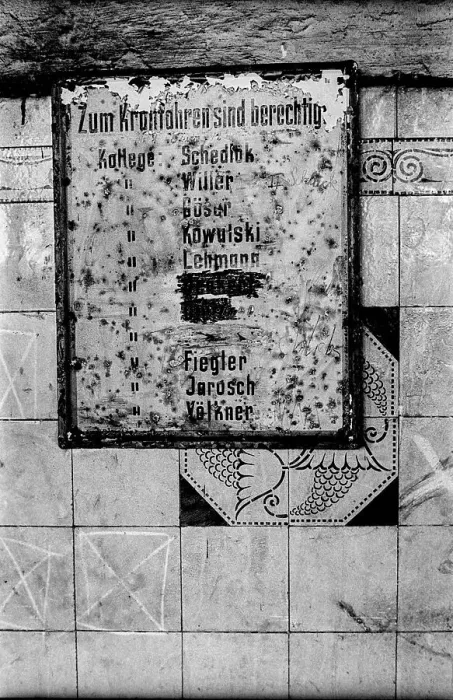 Zum Kranfahren sind berechtig
Kollege Schedlok
" Willer
" Göser
" Kowalski
" Lehmann
"
"
"
" Fiegler
" Jarosch
" Völkner